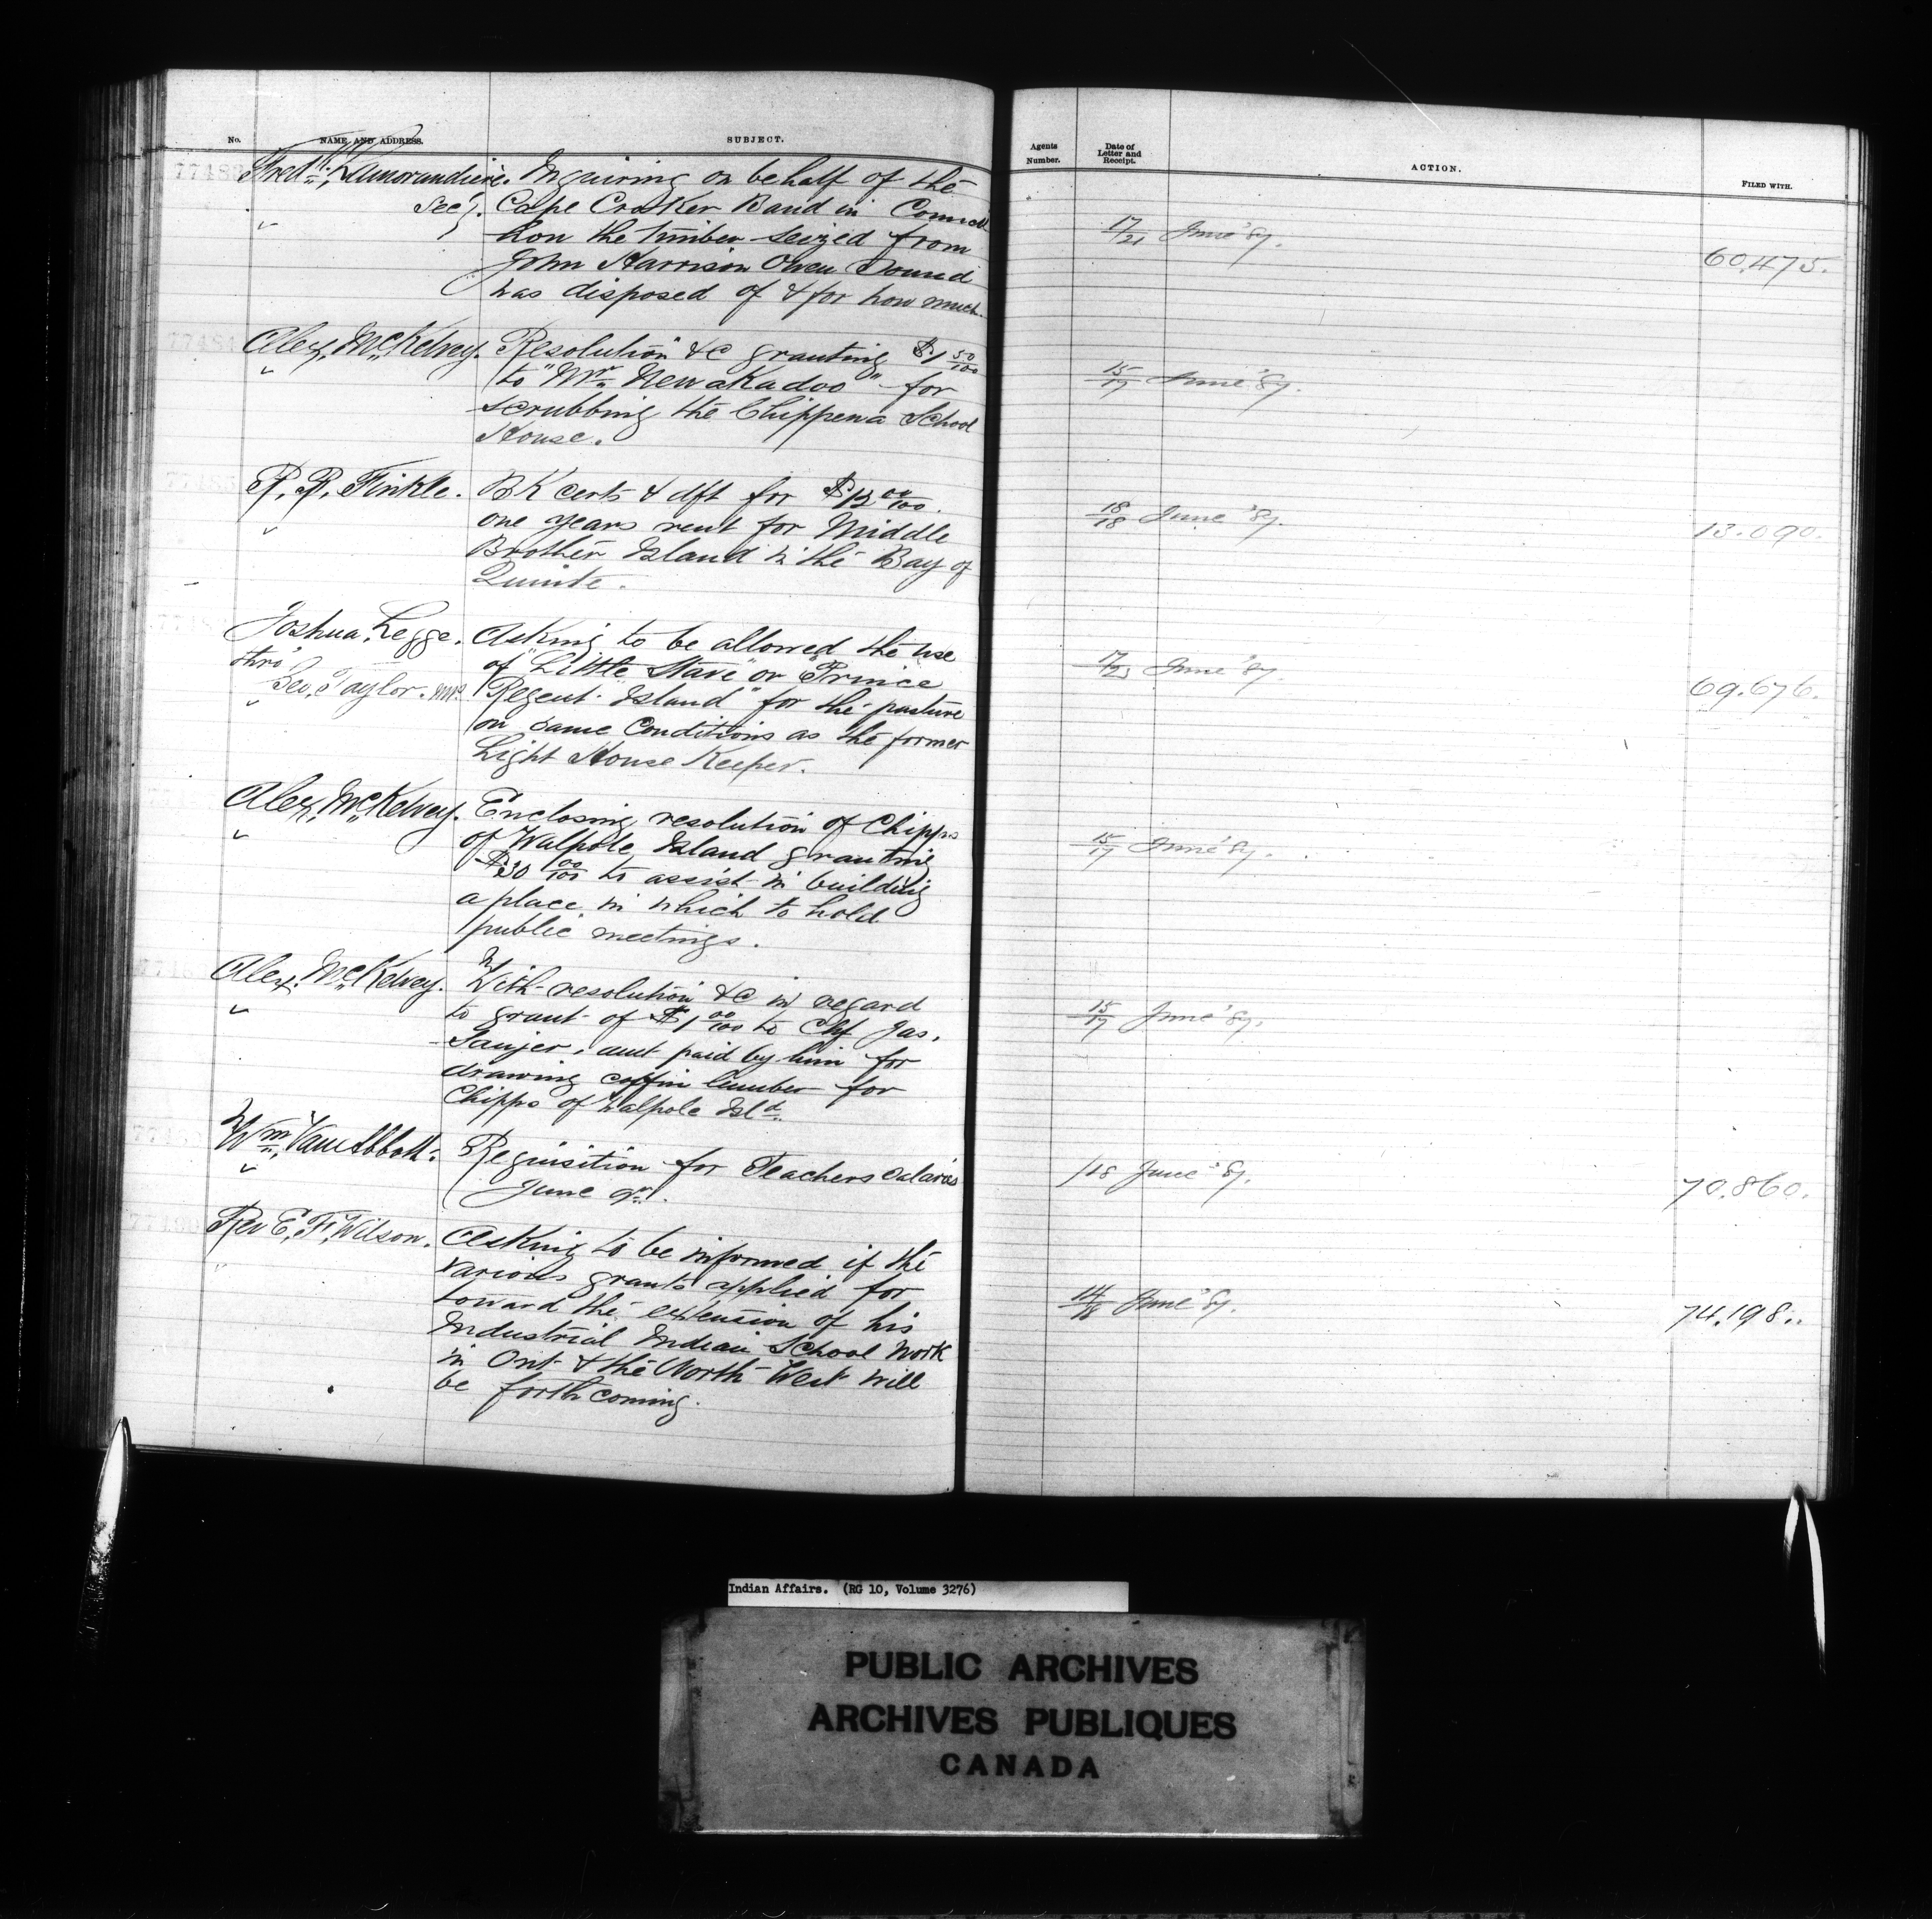 No. NAME AND ADDRESS. SUBJECT.
Agents Number. Date of Letter and Receipt. ACTION. FILED WITH.
Fred K. Lamorandiere. Inquiring on behalf of the
Secy. Cape Croker Band in Council
how the timber seized from
John Harrison Owen Sound
was disposed of & for how much.
17/21 June '87.
60.475.
77484
Alex, McKelvey. Resolution &c granting $1 50/100
to "Mrs Newakadoo" for
scrubbing the Chippewa School
House.
15/17 June '87.
77485
R. R. Finkle. BK certs & dft for $12 00/100.
one years rent for Middle
Brother Island in the Bay of
Quinte.
18/18 June '87.
13.090.
Joshua Legge. Asking to be allowed the use
thro' of "Little Stave" or Prince
Geo, Taylor. M.P. Regent Island" for the pasture
on same conditions as the former
Light House Keeper.
17/23 June '87.
69.676.
Alex, McKelvey. Enclosing resolution of Chipps
of Walpole Island granting
$30 00/100 to assist in building
a place in which to hold
public meetings.
15/17 June '87.
Alex. McKelvey. With resolution &c in regard
to grant of $1 00/100 to Chf Jas.
amt paid by him for
drawing coffin lumber for
Chipps of Walpole Isld.
15/17 June '87.
Wm, Van Abbott. Requisition for Teachers salaries
June qr.
/18 June '87.
70.860.
Rev E. F. Wilson. Asking to be informed if the
various grants applied for
toward the extension of his
Industrial Indian School Work
in Ont & the North West will
be forthcoming.
14/18 June '87.
74.198.
Indian Affairs. (RG 10, Volume 3276)
PUBLIC ARCHIVES
ARCHIVES PUBLIQUES
CANADA